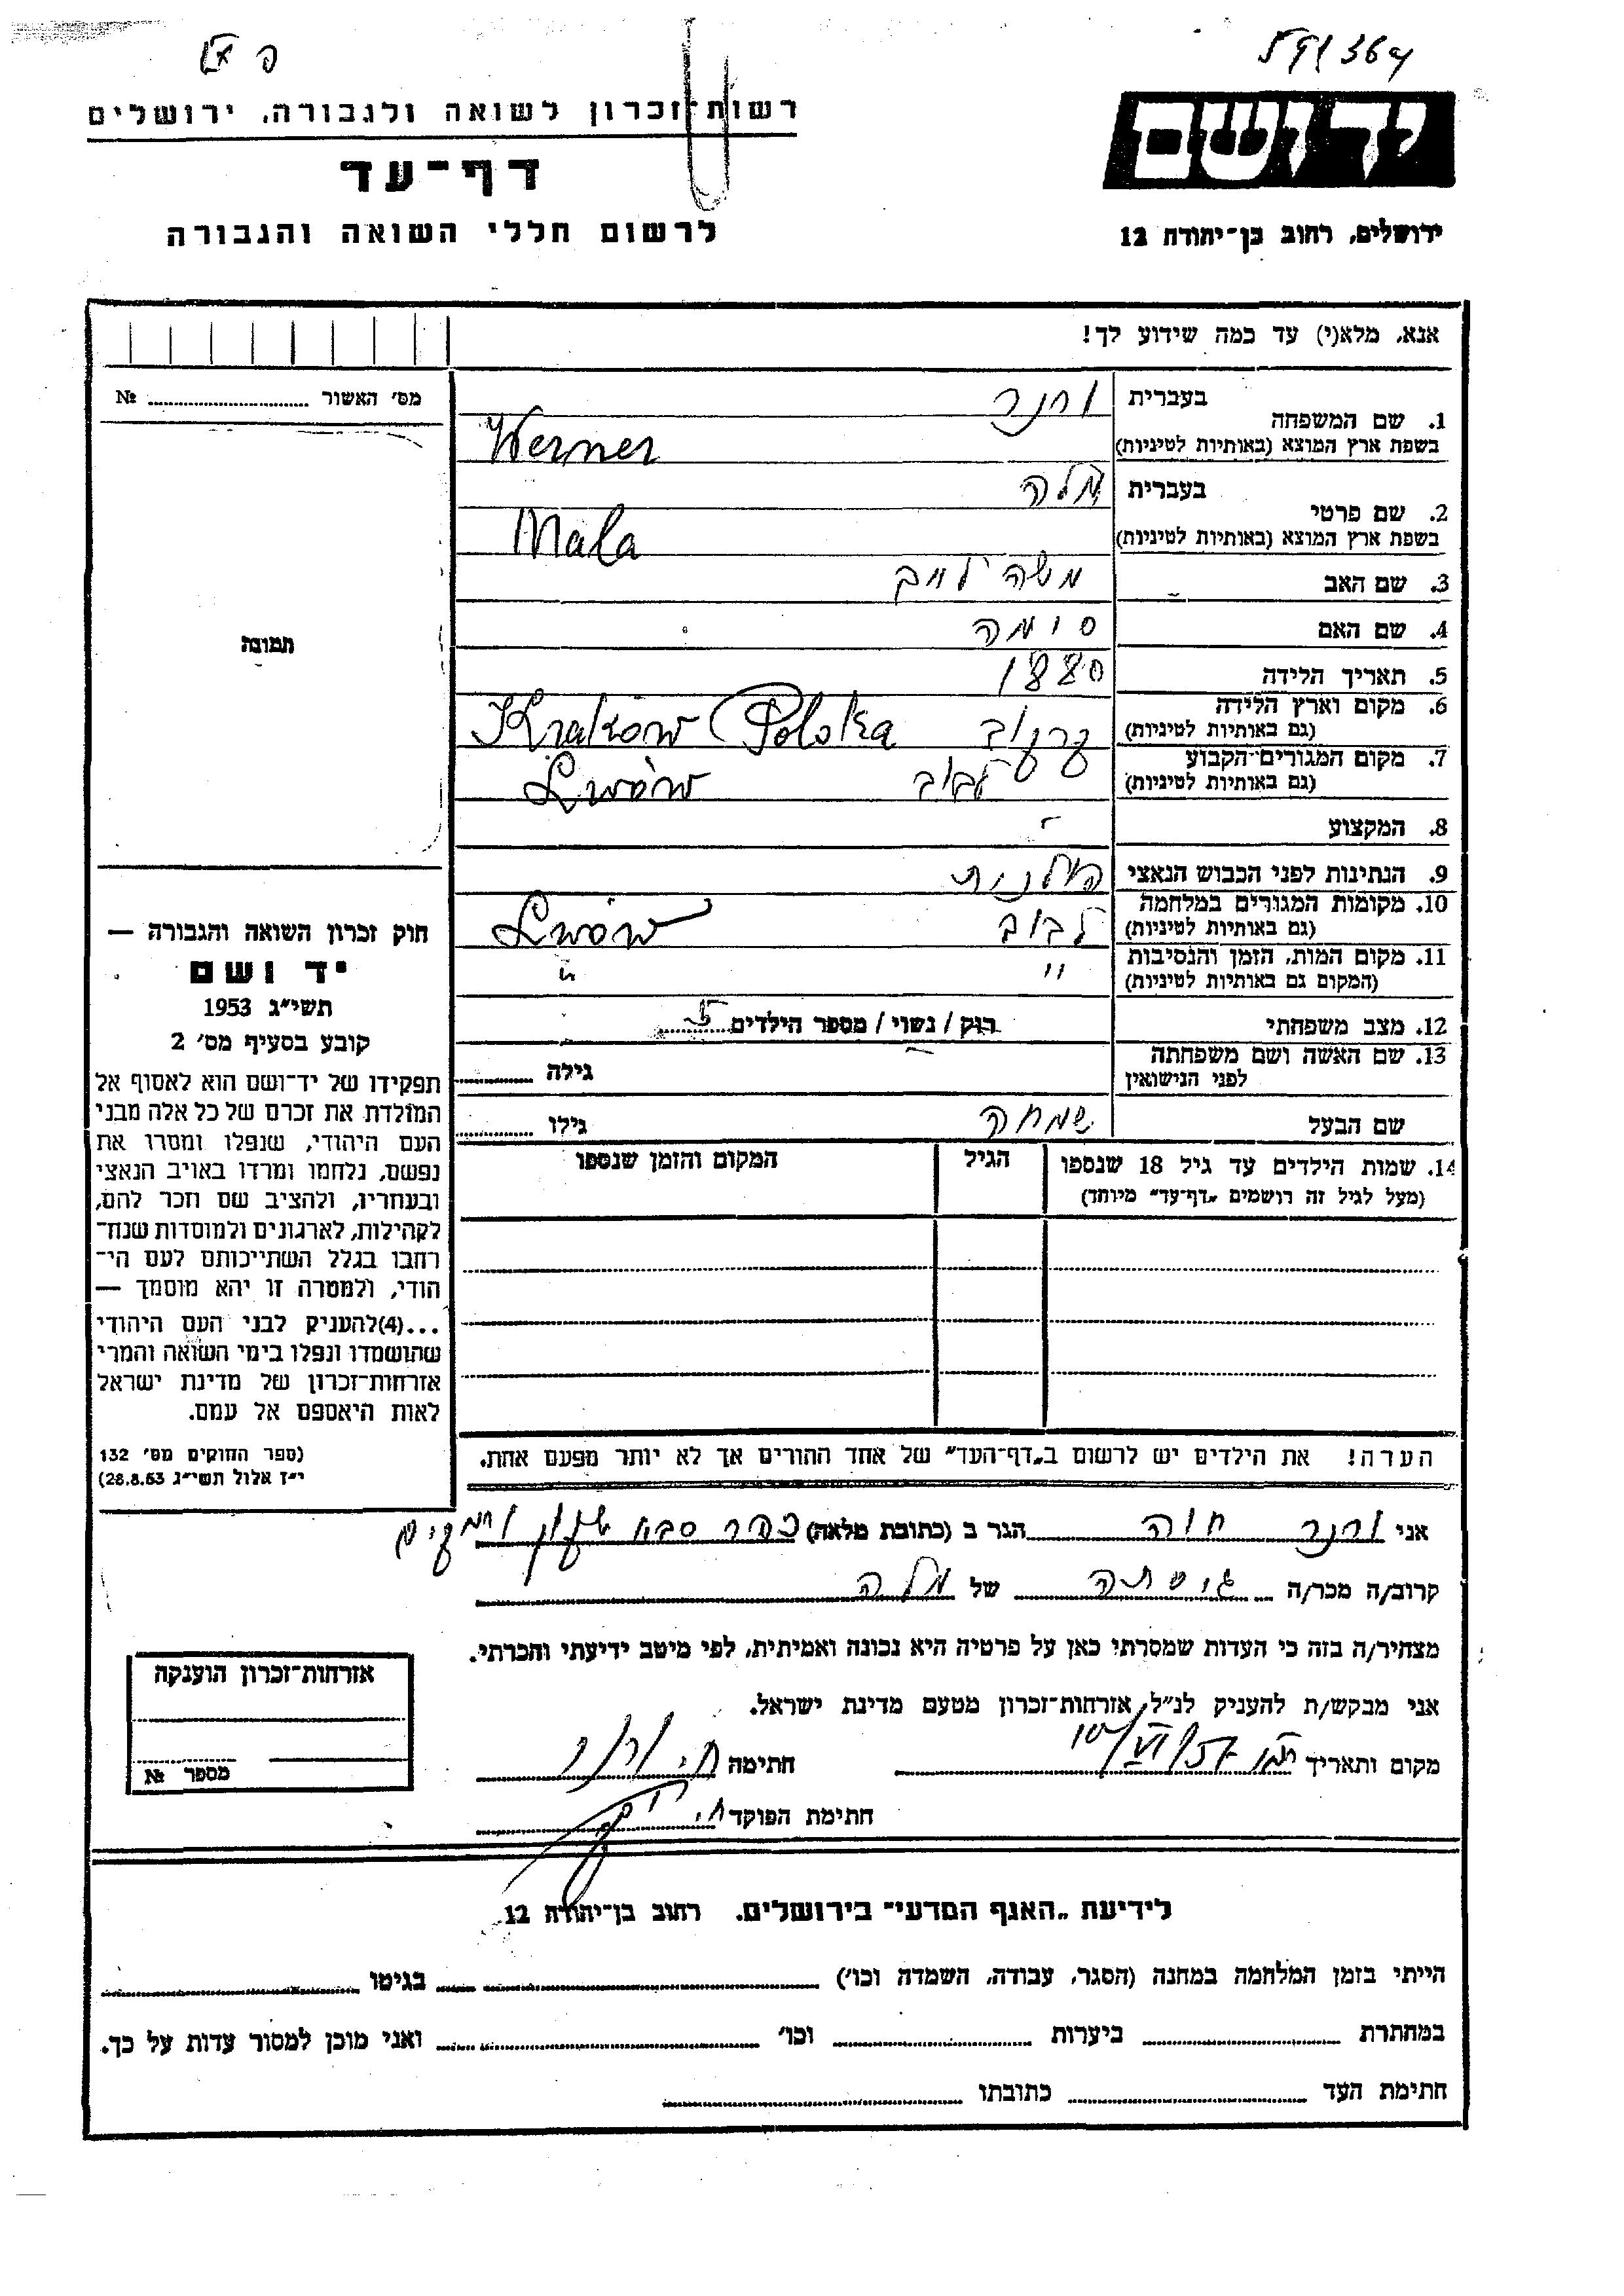 רשות-זכרון לשואה ולגבורה, ירושלים
דף-עד
לרשום חללי השואה והגבורה
יד ושם
ירושלים, רחוב בן-יהודה 12
אנא, מלא(י) עד כמה שידוע לך!
מס' האשור ............ №
תמונה
1. שם המשפחה
בעברית ורנר
בשפת ארץ המוצא (באותיות לטיניות) Werner
2. שם פרטי
בעברית מלה
בשפת ארץ המוצא (באותיות לטיניות) Mala
3. שם האב משה לייב
4. שם האם סימה
5. תאריך הלידה 1880
6. מקום וארץ הלידה
(גם באותיות לטיניות) Kraków Polska
7. מקום המגורים הקבוע
(גם באותיות לטיניות) לבוב Lwów
8. המקצוע -
9. הנתינות לפני הכבוש הנאצי פולנית
10. מקומות המגורים במלחמה
(גם באותיות לטיניות) לבוב Lwów
11. מקום המות, הזמן והנסיבות
(המקום גם באותיות לטיניות) " "
12. מצב משפחתי רוק / נשוי / מספר הילדים 5
13. שם האשה ושם משפחתה
לפני הנישואין גילה
שם הבעל שמחה גילו
14. שמות הילדים עד גיל 18 שנספו הגיל המקום והזמן שנספו
(מעל לגיל זה רושמים "דף-עד" מיוחד)
הערה! את הילדים יש לרשום ב"דף-העד" של אחד ההורים אך לא יותר מפעם אחת.
חוק זכרון השואה והגבורה —
יד ושם
תשי"ג 1953
קובע בסעיף מס' 2
תפקידו של יד-ושם הוא לאסוף אל
המולדת את זכרם של כל אלה מבני
העם היהודי, שנפלו ומסרו את
נפשם, נלחמו ומרדו באויב הנאצי
ובעוזריו, ולהציב שם וזכר להם,
לקהילות, לארגונים ולמוסדות שנח-
רחבו בגלל השתייכותם לעם הי-
הודי, ולמטרה זו יהא מוסמך —
...(4)להעניק לבני העם היהודי
שהושמדו ונפלו בימי השואה והמרי
אזרחות-זכרון של מדינת ישראל
לאות היאספם אל עמם.
(ספר החוקים מס' 132
י"ז אלול תשי"ג 28.8.53)
אני ורנר חוה הגר ב (כתובת מלאה) כפר סבא
קרוב/ה מכר/ה גיסתה של מלה
מצהיר/ה בזה כי העדות שמסרתי כאן על פרטיה היא נכונה ואמיתית, לפי מיטב ידיעתי והכרתי.
אני מבקש/ת להעניק לנ"ל, אזרחות-זכרון מטעם מדינת ישראל.
מקום ותאריך 10/VI/57 חתימה ח. ורנר
חתימת הפוקד
אזרחות-זכרון הוענקה
מספר №
לידיעת "האגף המדעי" בירושלים. רחוב בן-יהודה 12
הייתי בזמן המלחמה במחנה (הסגר, עבודה, השמדה וכו') בגיטו
במחתרת ביערות וכו' ואני מוכן למסור עדות על כך.
חתימת העד כתובתו